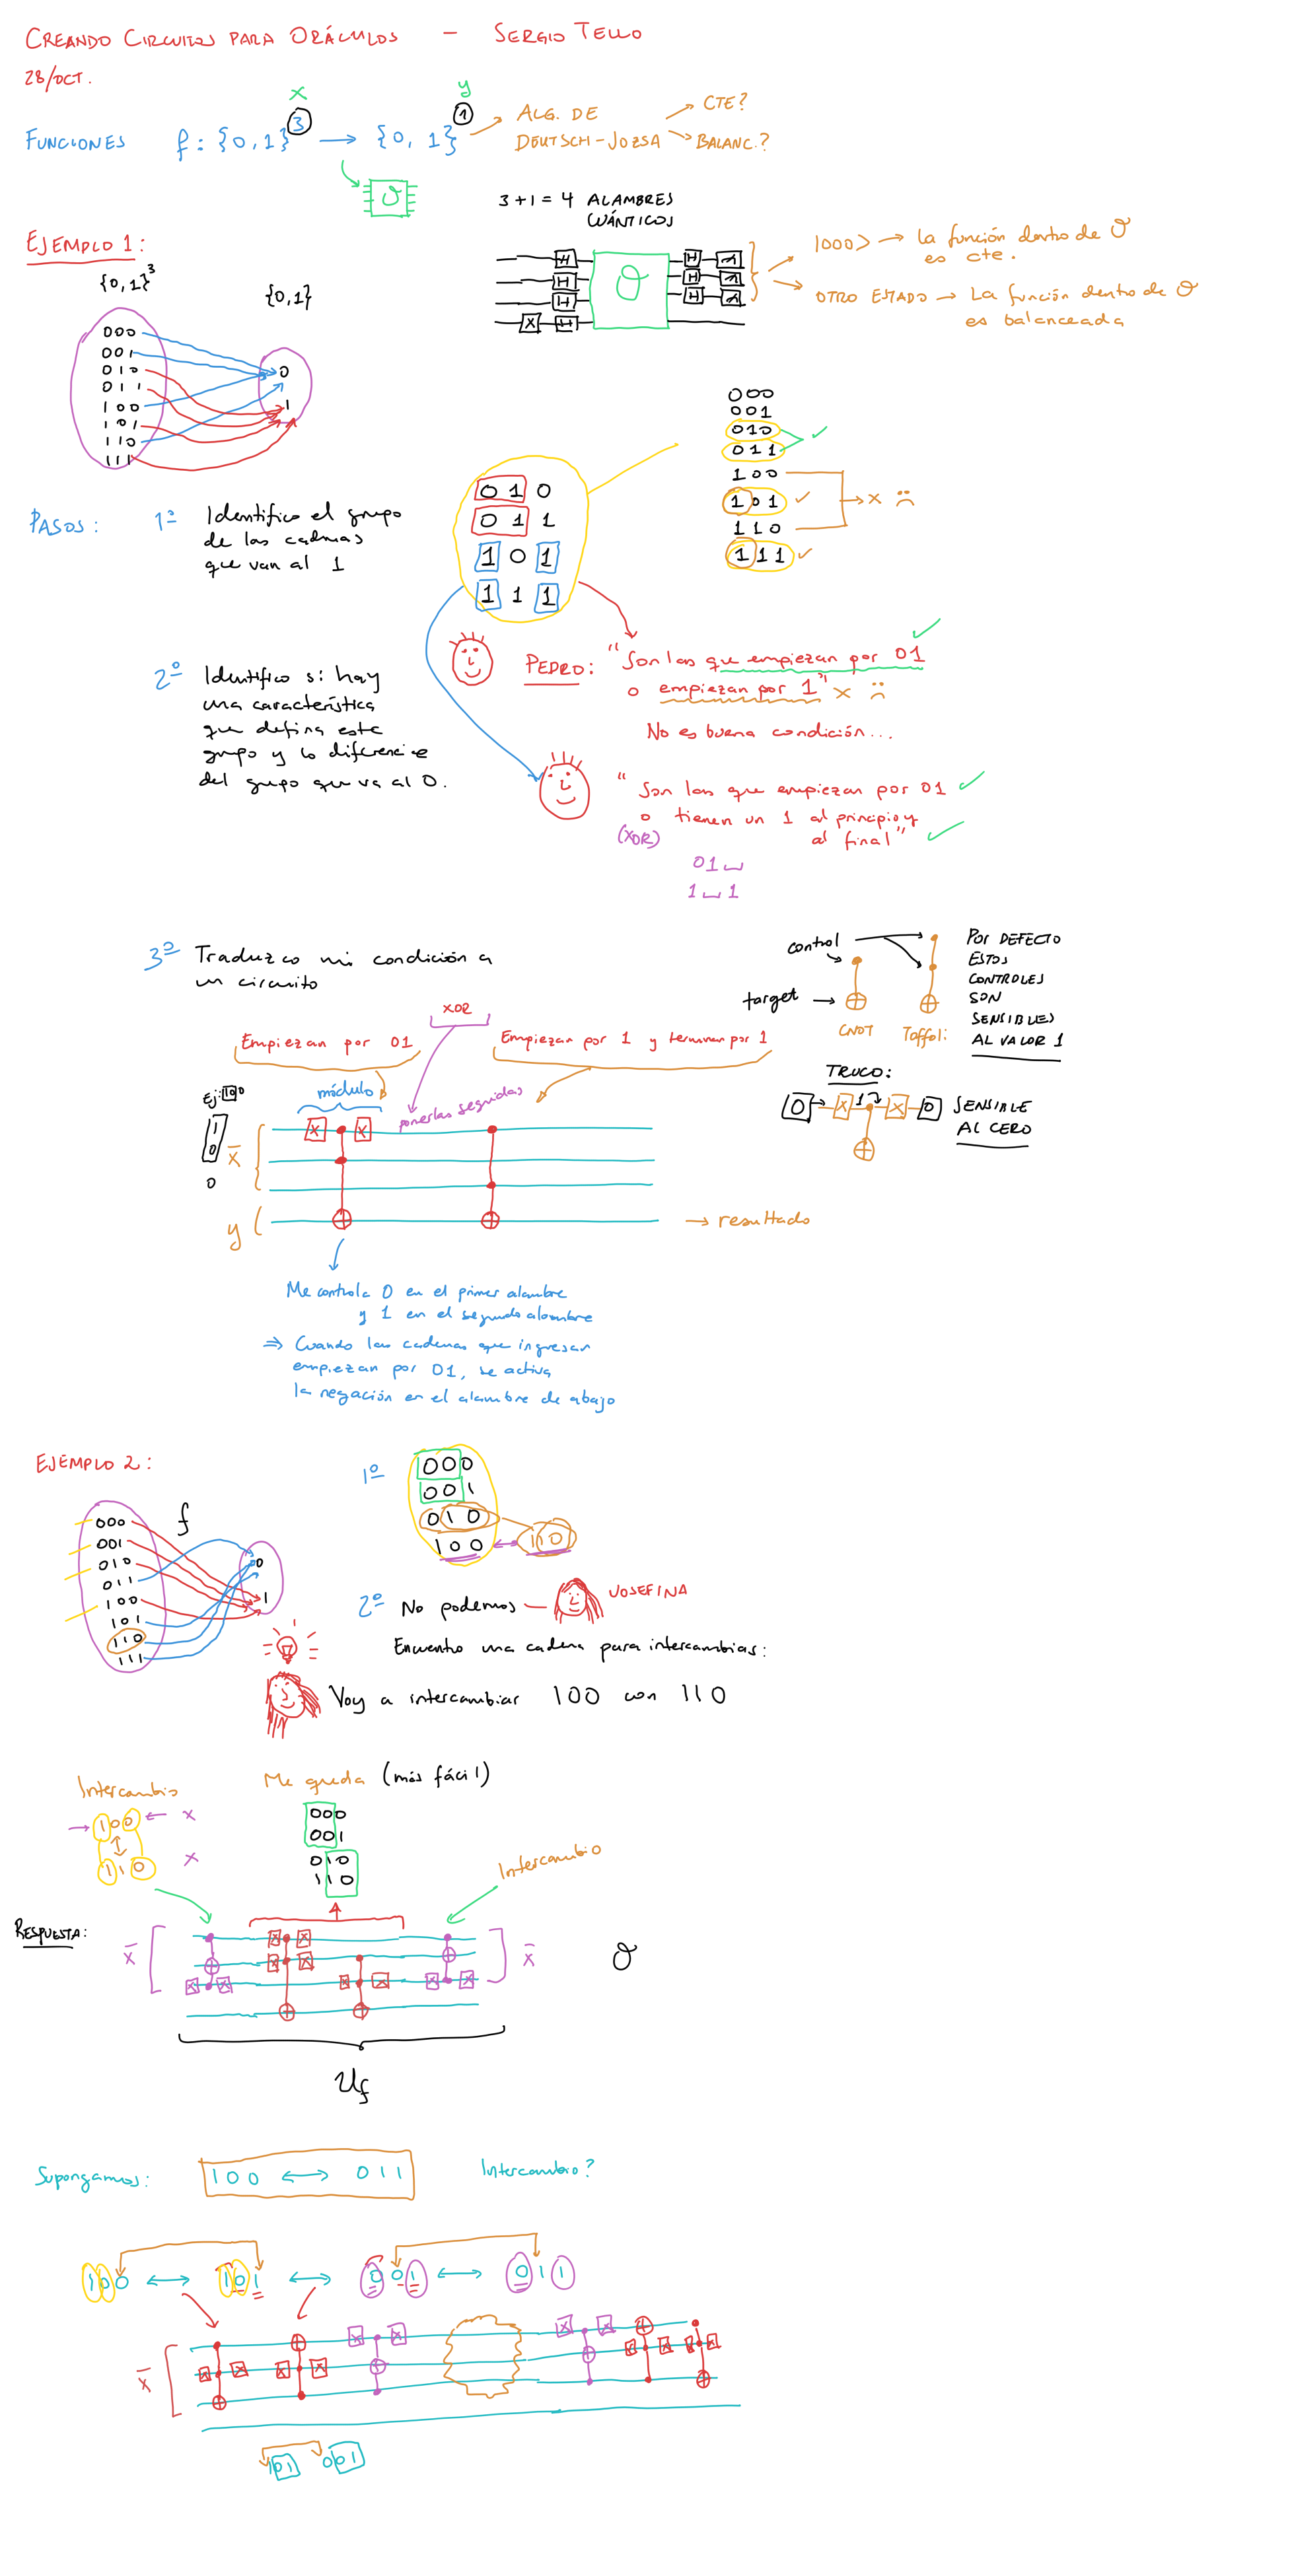 CREANDO CIRCUITOS PARA ORÁCULOS — SERGIO TELLO
28/OCT.
x
y
FUNCIONES f: {0,1}³ → {0,1}¹
ALG. DE DEUTSCH-JOZSA
CTE?
BALANC.?
O
3+1 = 4 ALAMBRES
CUÁNTICOS
EJEMPLO 1:
{0,1}³
{0,1}
000
001
010
011
100
101
110
111
0
1
H H
H O H
H H
X H
|000> → La función dentro de O
es cte.
OTRO ESTADO → La función dentro de O
es balanceada
000
001
010
011
100
101
110
111
x
PASOS: 1º Identifico el grupo
de las cadenas
que van al 1
010
011
101
111
2º Identifico si hay
una característica
que defina este
grupo y lo diferencie
del grupo que va al 0.
PEDRO: "Son las que empiezan por 01
o empiezan por 1" x
No es buena condición...
"Son las que empiezan por 01
o tienen un 1 al principio y
(XOR) al final"
01␣
1␣1
3º Traduzco mi condición a
un circuito
control
target →
CNOT Toffoli
POR DEFECTO
ESTOS
CONTROLES
SON
SENSIBLES
AL VALOR 1
TRUCO:
0 → X 1 X 0 SENSIBLE
AL CERO
XOR
Empiezan por 01
Empiezan por 1 y terminan por 1
Ej: 100
módulo
ponerlas seguidas
1
0
0
x̄
X X
y
→ resultado
Me controla 0 en el primer alambre
y 1 en el segundo alambre
⇒ Cuando las cadenas que ingresan
empiezan por 01, se activa
la negación en el alambre de abajo
EJEMPLO 2:
f
000
001
010
011
100
101
110
111
0
1
1º
000
001
010
100 ↔ 110
2º No podemos — JOSEFINA
Encuentro una cadena para intercambiar:
Voy a intercambiar 100 con 110
Intercambio
→ 100 ← x
110 x
Me queda (más fácil)
000
001
010
110
Intercambio
RESPUESTA:
x̄
X X
X X
X X X X X X
x̄
O
Uf
Supongamos: 100 ↔ 011 Intercambio?
100 ↔ 101 ↔ 001 ↔ 011
x̄
X X X X
X X X X X X X X
101 001